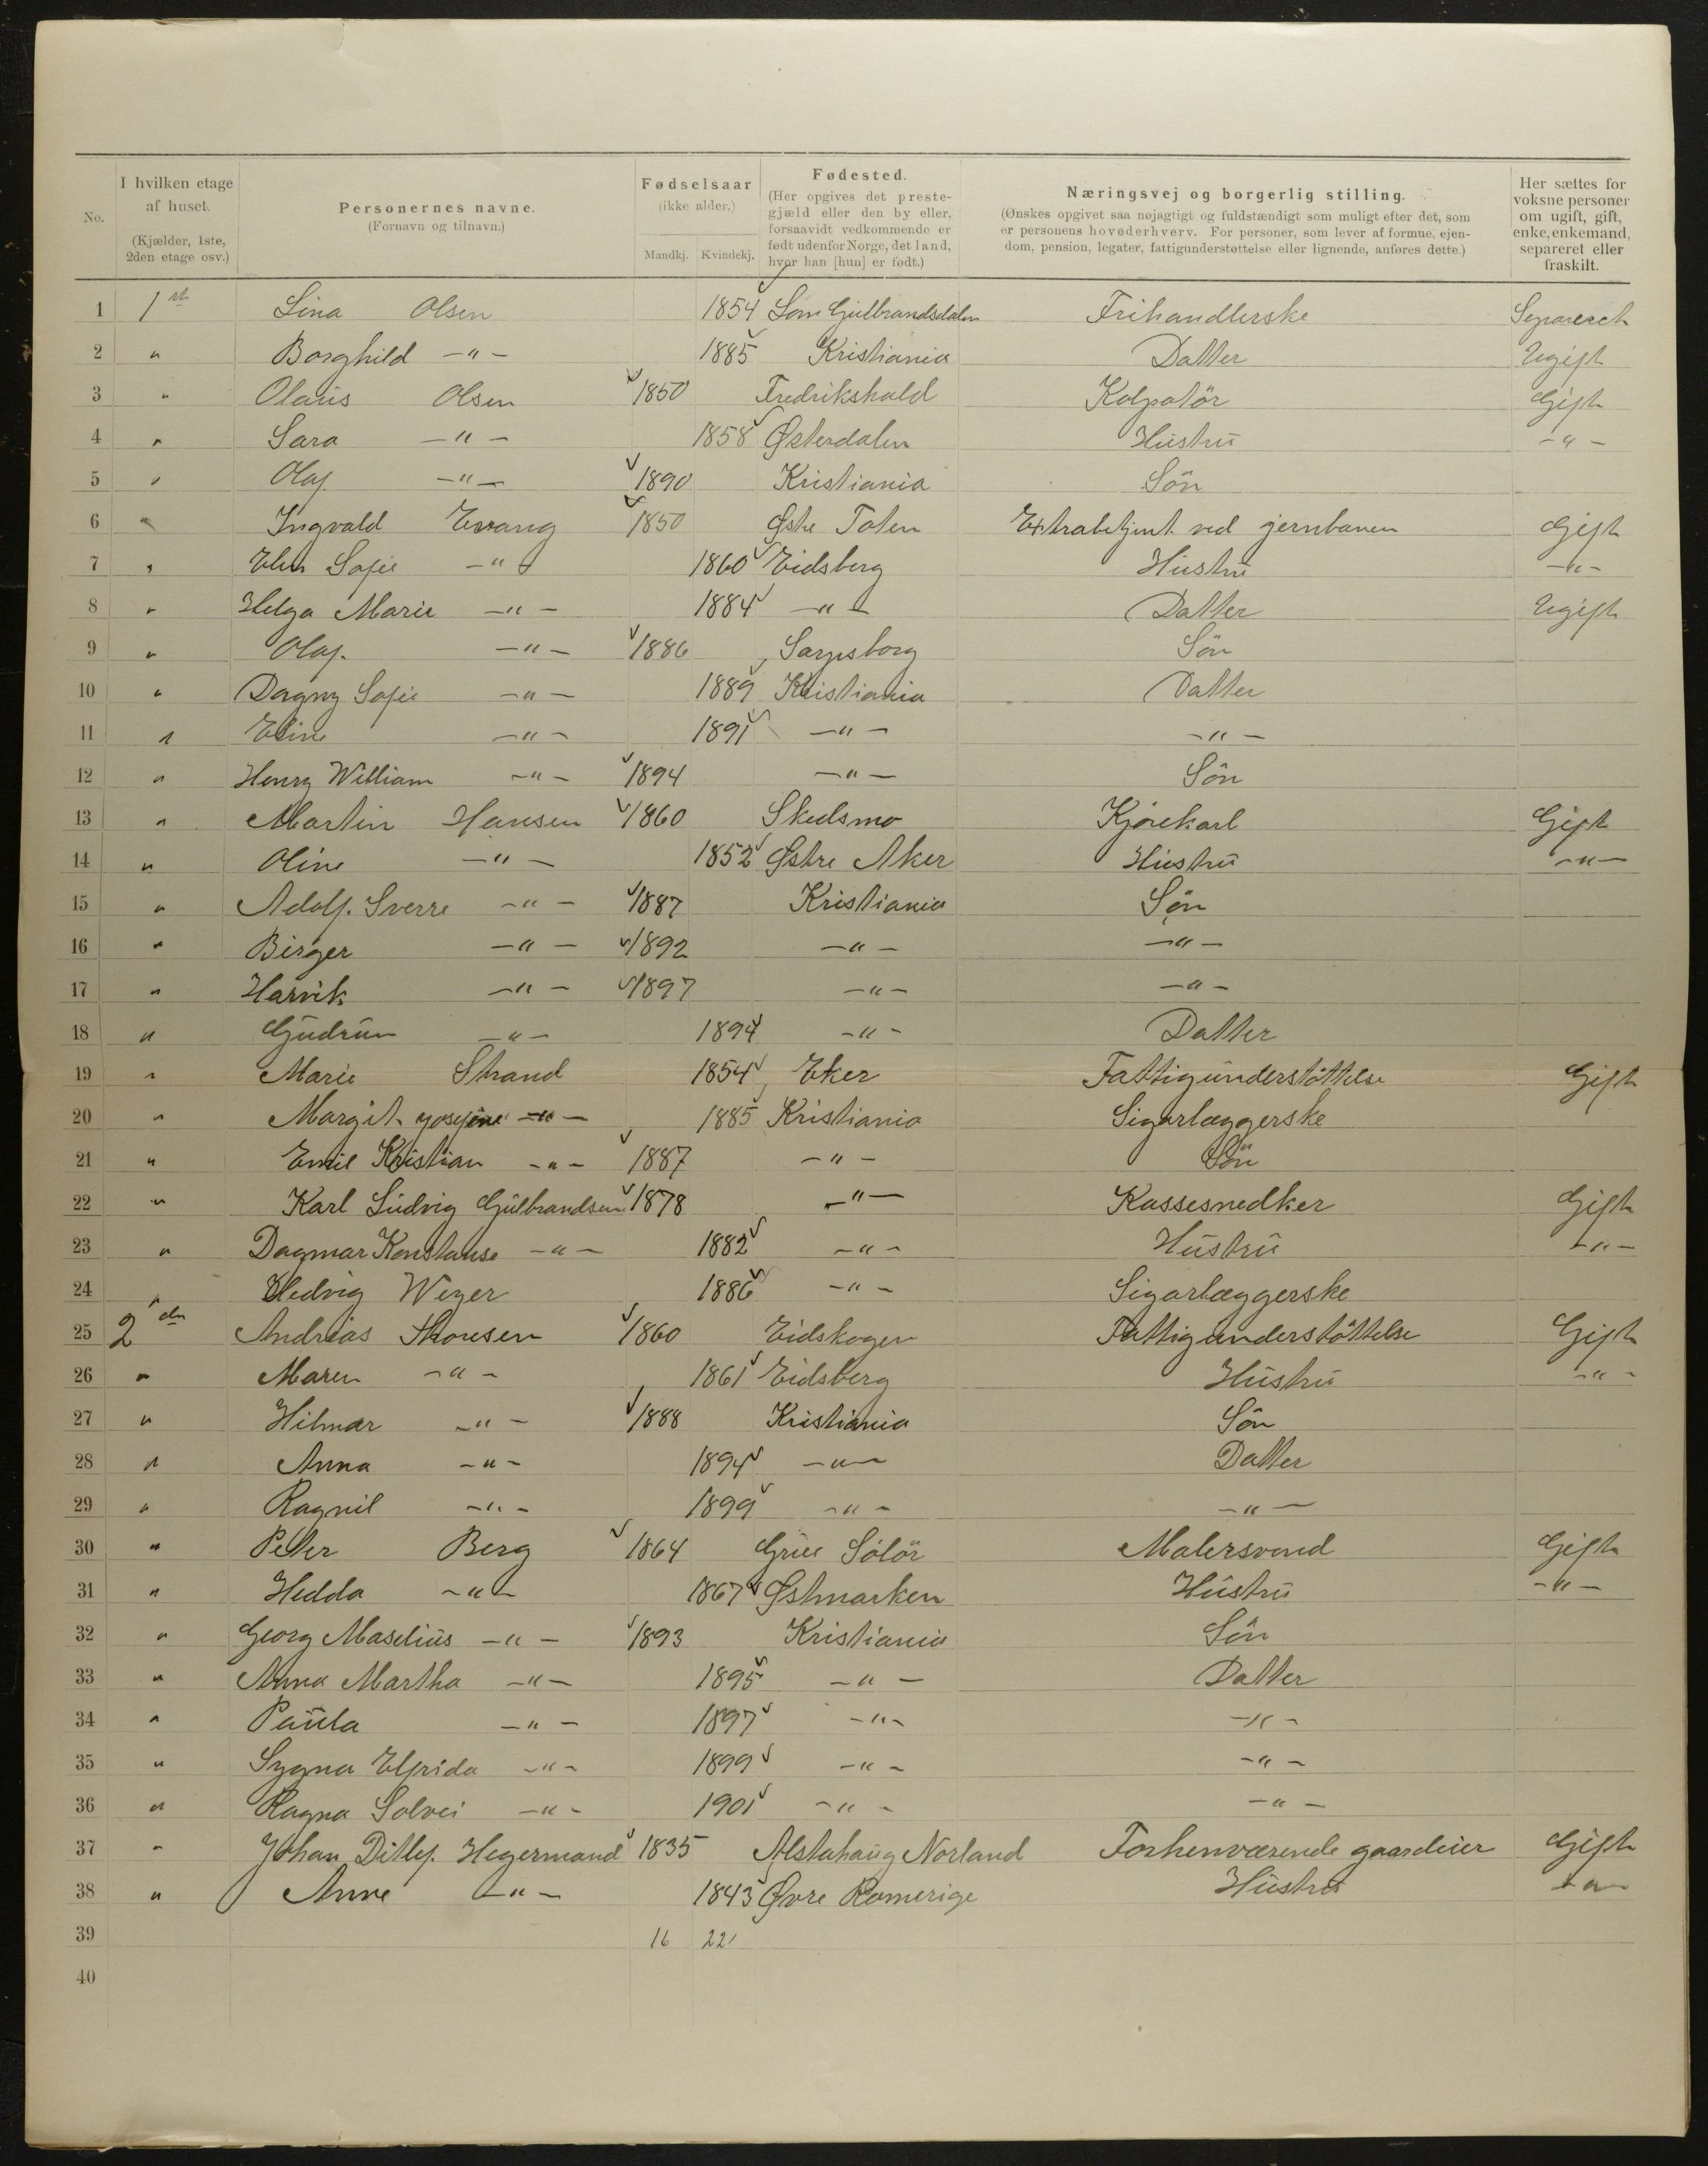 No.
I hvilken etage af huset. (Kjælder, 1ste, 2den etage osv.)
Personernes navne. (Fornavn og tilnavn.)
Fødselsaar (ikke alder.) Mandkj. Kvindekj.
Fødested. (Her opgives det prestegjæld eller den by eller, forsaavidt vedkommende er født udenfor Norge, det land, hvor han [hun] er født.)
Næringsvej og borgerlig stilling. (Ønskes opgivet saa nøjagtigt og fuldstændigt som muligt efter det, som er personens hovederhverv. For personer, som lever af formue, ejendom, pension, legater, fattigunderstøttelse eller lignende, anføres dette.)
Her sættes for voksne personer om ugift, gift, enke, enkemand, separeret eller fraskilt.
1 1ste Lina Olsen 1854 Lom Gulbrandsdalen Frihandlerske Separeret
2 " Borghild -"- 1885 Kristiania Datter Ugift
3 " Olaus Olsen 1850 Fredrikshald Kolpotör Gift
4 " Sara -"- 1858 Østerdalen Hustru -"-
5 " Olaf -"- 1890 Kristiania Sön
6 " Ingvald Evang 1850 Østre Toten Extrabetjent ved jernbanen Gift
7 " Elen Sofie -"- 1860 Eidsberg Hustru -"-
8 " Helga Marie -"- 1884 -"- Datter Ugift
9 " Olaf. -"- 1886 Sarpsborg Sön
10 " Dagny Sofie -"- 1889 Kristiania Datter
11 " Eline -"- 1891 -"- -"-
12 " Henry William -"- 1894 -"- Sön
13 " Martin Hansen 1860 Skedsmo Kjörekarl Gift
14 " Oline -"- 1852 Østre Aker Hustru -"-
15 " Adolf. Sverre -"- 1887 Kristiania Sön
16 " Birger -"- 1892 -"- -"-
17 " Harvik -"- 1897 -"- -"-
18 " Gudrun -"- 1894 -"- Datter
19 " Marie Strand 1854 Eker Fattigunderstöttelse Gift
20 " Margit -"- 1885 Kristiania Sigarlæggerske
21 " Emil Kristian -"- 1887 -"- Sön
22 " Karl Ludvig Gulbrandsen 1878 -"- Kassesnedker Gift
23 " Dagmar Konstanse -"- 1882 -"- Hustru -"-
24 " Hedvig Weyer 1886 -"- Sigarlæggerske
25 2den Andreas Thoresen 1860 Eidskogen Fattigunderstöttelse Gift
26 " Maren -"- 1861 Eidsberg Hustru -"-
27 " Hilmar -"- 1888 Kristiania Sön
28 " Anna -"- 1894 -"- Datter
29 " Ragnil -"- 1899 -"- -"-
30 " Peter Berg 1864 Grue Solör Malersvend Gift
31 " Hedda -"- 1867 Østmarken Hustru -"-
32 " Georg Maselius -"- 1893 Kristiania Sön
33 " Anna Martha -"- 1895 -"- Datter
34 " Paula -"- 1897 -"- -"-
35 " Sygna Elfrida -"- 1899 -"- -"-
36 " Ragna Solvei -"- 1901 -"- -"-
37 " Johan Ditlef. Hegermand 1835 Alstahaug Norland Forhenværende gaardeier Gift
38 " Anne -"- 1843 Øvre Romerige Hustru -"-
39 16 22
40